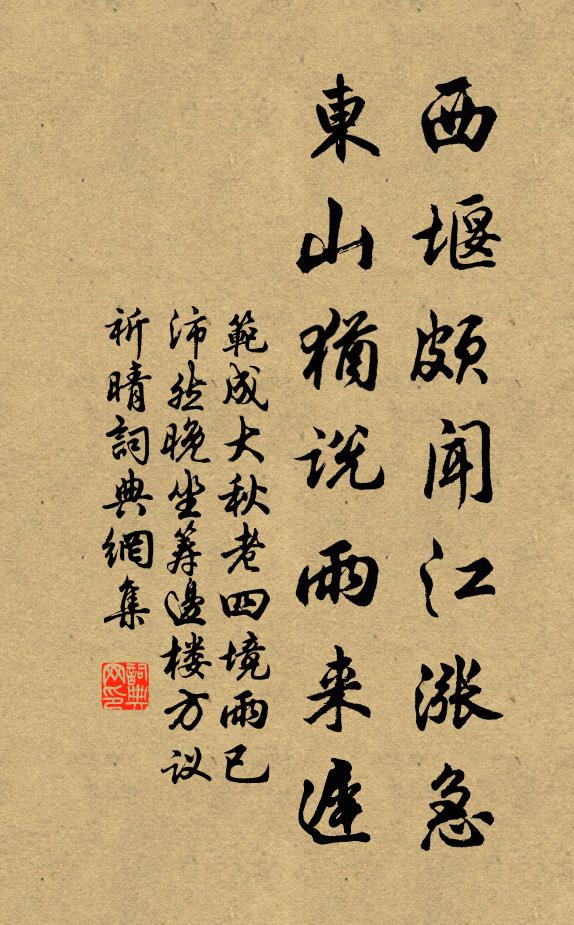 西堰頗聞江漲急
東山猶說雨来遲
範成大秋老四境雨已
沛然晚坐籌邊楼方议
祈晴詞典網集
詞典
网印